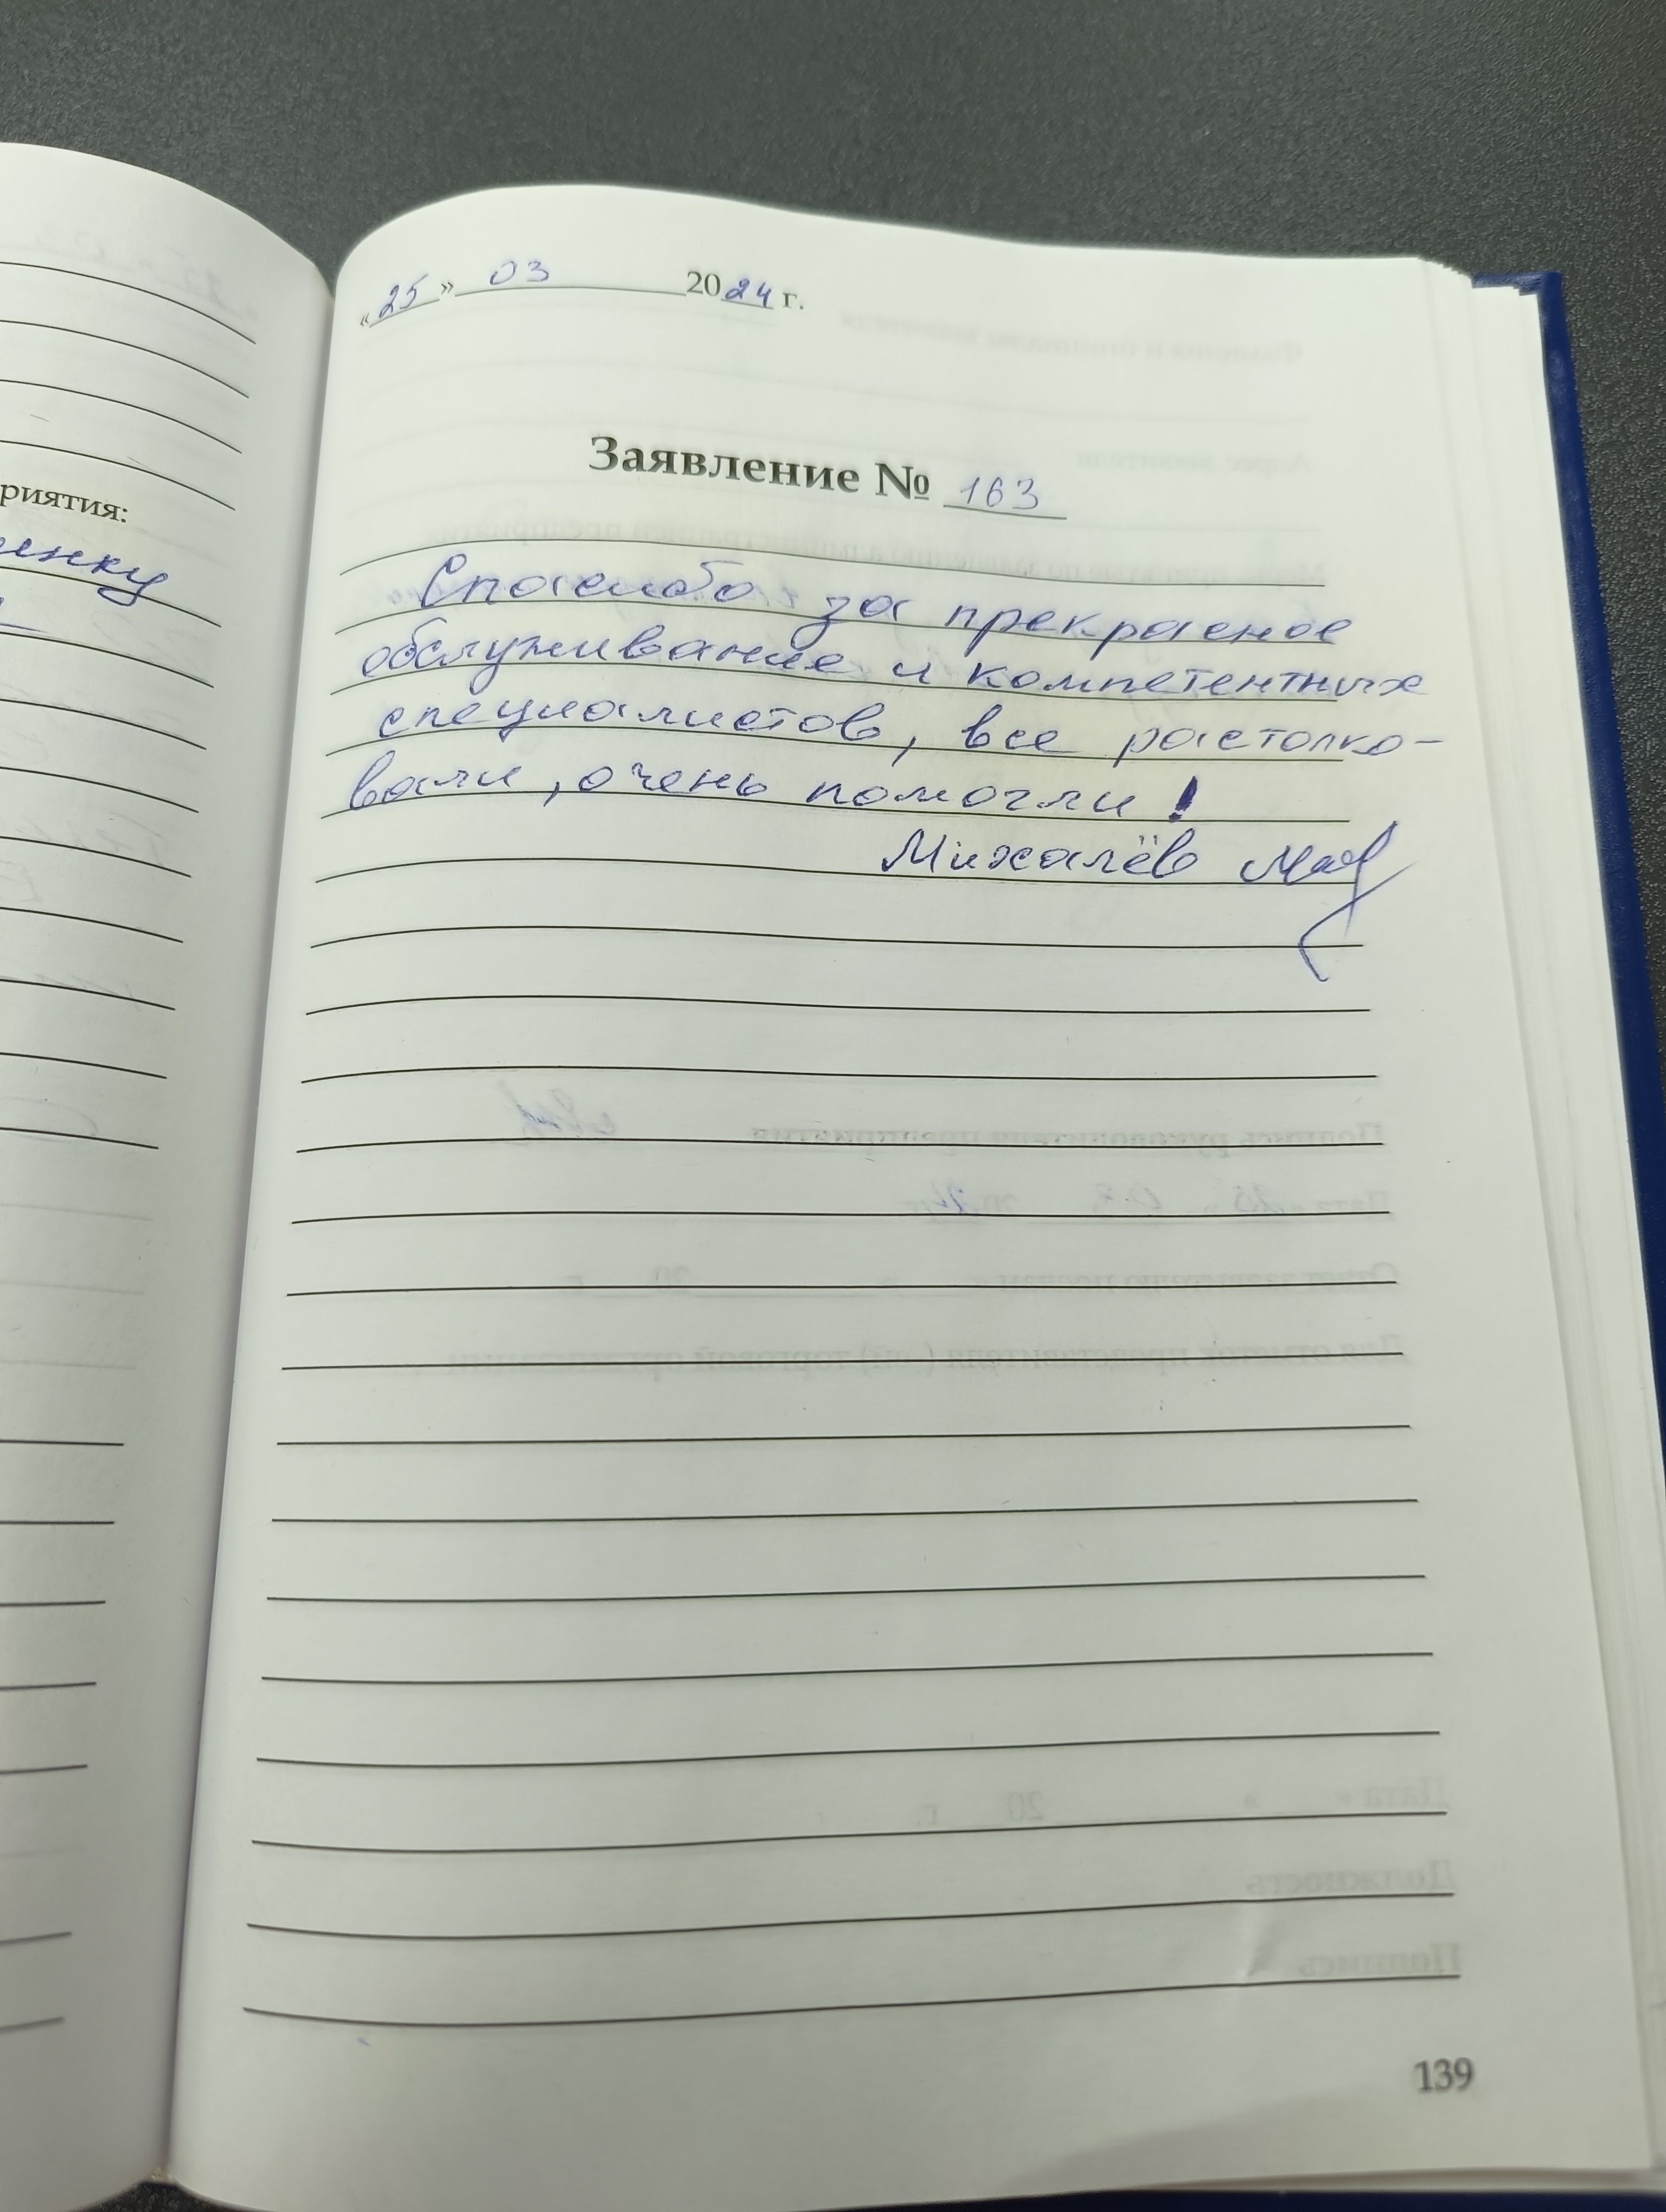 риятия:
енку
«25» 03 2024 г.
Заявление № 163
Спасибо за прекрасное
обслуживание и компетентных
специалистов, все растолко-
вали, очень помогли!
Михалёв
139